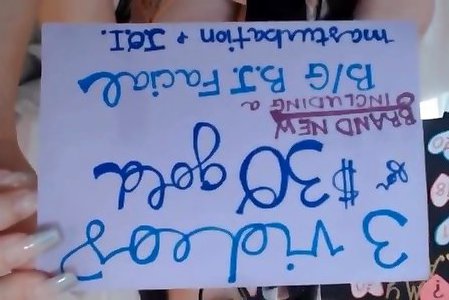 3 videos
for $30 gold
BRAND NEW
INCLUDING a
B/G B.J. Facial
masturbation + JOI.